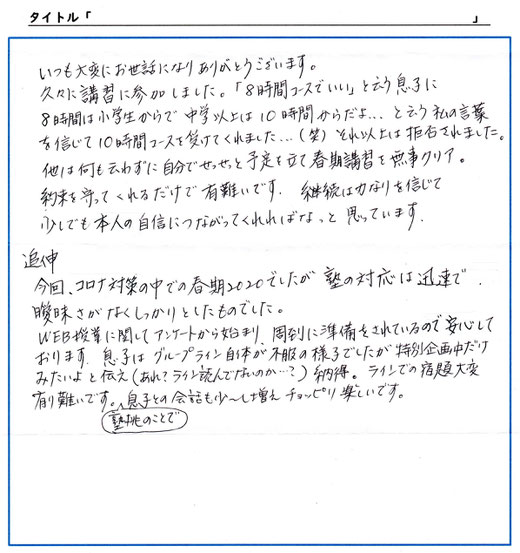 タイトル「 」
いつも大変にお世話になりありがとうございます。
久々に講習に参加しました。「8時間コースでいい」と云う息子に
8時間は小学生からで中学以上は10時間からだよ…と云う私の言葉
を信じて10時間コースを受けてくれました…(笑)それ以上は拒否されました。
他は何も云わずに自分でせっせと予定を立て春期講習を無事クリア。
約束を守ってくれるだけで有難いです。継続は力なりを信じて
少しでも本人の自信につながってくれればなっと思っています.
追伸
今回、コロナ対策の中での春期2020でしたが塾の対応は迅速で、
曖昧さがなくしっかりとしたものでした。
WEB授業に関してアンケートから始まり、周到に準備をされているので安心して
おります。息子はグループライン自体が不服の様子でしたが特別企画中だけ
みたいよと伝え(あれ?ライン読んでないのか…?)納得。ラインでの宿題大変
有り難いです。息子との会話も少〜し増えチョッピリ楽しいです。
塾ネタのことで